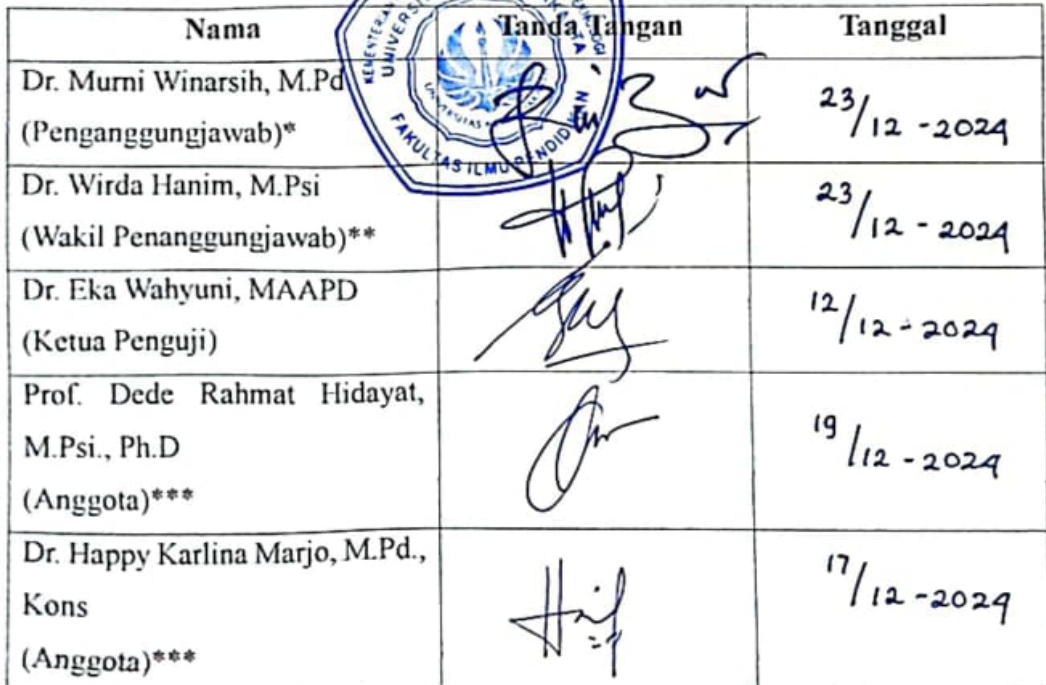 Nama
Tanda Tangan
Tanggal
Dr. Murni Winarsih, M.Pd
(Penganggungjawab)*
23/12 - 2024
Dr. Wirda Hanim, M.Psi
(Wakil Penanggungjawab)**
23/12 - 2024
Dr. Eka Wahyuni, MAAPD
(Ketua Penguji)
12/12 - 2024
Prof. Dede Rahmat Hidayat,
M.Psi., Ph.D
(Anggota)***
19/12 - 2024
Dr. Happy Karlina Marjo, M.Pd.,
Kons
(Anggota)***
17/12 - 2024
FAKULTAS ILMU PENDIDIKAN